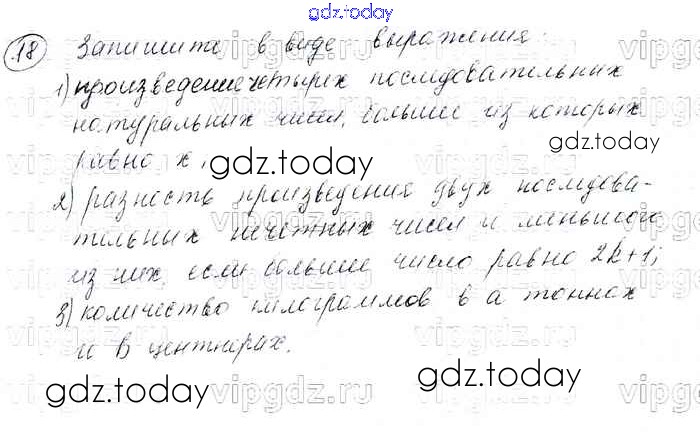 gdz.today
18 Запишите в виде выражения:
1) произведение четырех последовательных
натуральных чисел, большее из которых
равно x;
gdz.today gdz.today
2) разность произведения двух последова-
тельных нечетных чисел и меньшего
из них, если большее число равно 2k+1;
3) количество килограммов в a тоннах
и b центнерах.
gdz.today gdz.today
vipgdz.ru vipgdz.ru